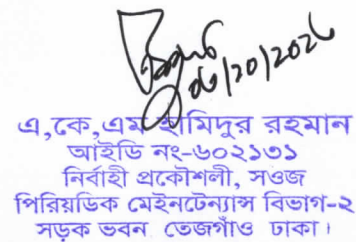 এ,কে,এম হামিদুর রহমান
আইডি নং-৬০২১৩১
নির্বাহী প্রকৌশলী, সওজ
পিরিয়ডিক মেইনটেন্যান্স বিভাগ-২
সড়ক ভবন, তেজগাঁও ঢাকা।